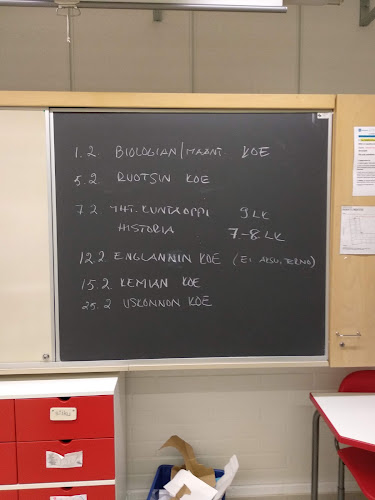 1.2. BIOLOGIAN/MAANT. KOE
5.2 RUOTSIN KOE
7.2 YHT.KUNTAOPPI 9 LK
HISTORIA 7.-8.LK
12.2 ENGLANNIN KOE (EI AKSU, TERNO)
15.2. KEMIAN KOE
25.2 USKONNON KOE